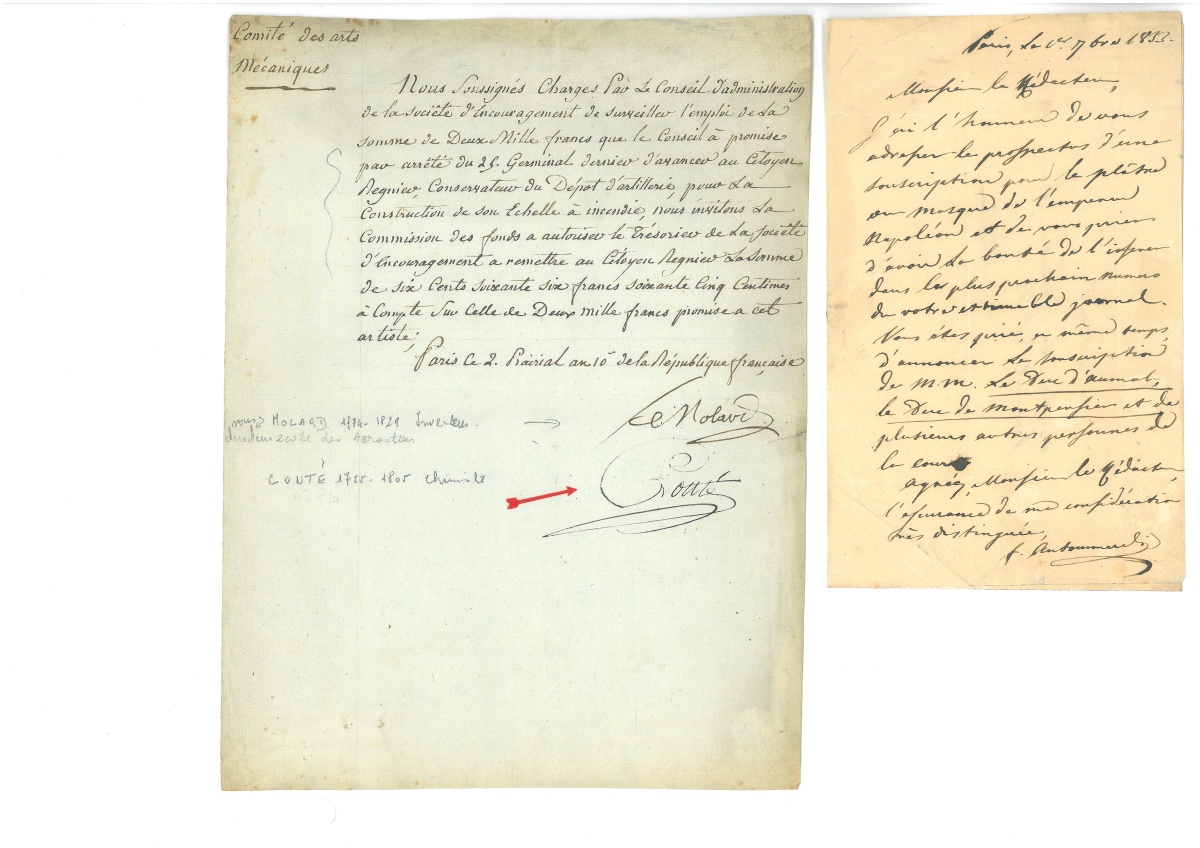 Comité des arts
Mécaniques
Nous Soussignés Chargés Par Le Conseil d'administration
de la société d'Encouragement de surveiller l'emploi de La
somme de Deux Mille francs que le Conseil à promise
par arrêté du 25. Germinal dernier d'avancer au Citoyen
Regnier, Conservateur du Dépot d'artillerie, pour La
Construction de son Echelle à incendie, nous invitons La
Commission des fonds a autoriser le Trésorier de La Société
d'Encouragement a remettre au Citoyen Regnier La Somme
de six Cents soixante six francs soixante Cinq Centimes
à Compte Sur Celle de Deux mille francs promise a cet
artiste;
Paris Le 2. Prairial an 10e de la République française
Molard
Conté
MOLARD 1774-1829 Inventeur
directeur école des
CONTÉ 1755-1805 Chimiste
Paris, le 1er 7bre 1833.
Monsieur le Rédacteur,
J'ai l'honneur de vous
adresser le prospectus d'une
souscription pour le plâtre
ou masque de l'empereur
Napoléon et de vous prier
d'avoir la bonté de l'insérer
dans le plus prochain numero
de votre estimable journal.
Vous êtes prié, en même temps,
d'annoncer la souscription
de M.M. Le Duc d'aumal,
le Duc de montpensier et de
plusieurs autres personnes de
la cour
agréez, Monsieur le Rédacteur,
l'assurance de ma considération
très distinguée,
f. Antommarchi